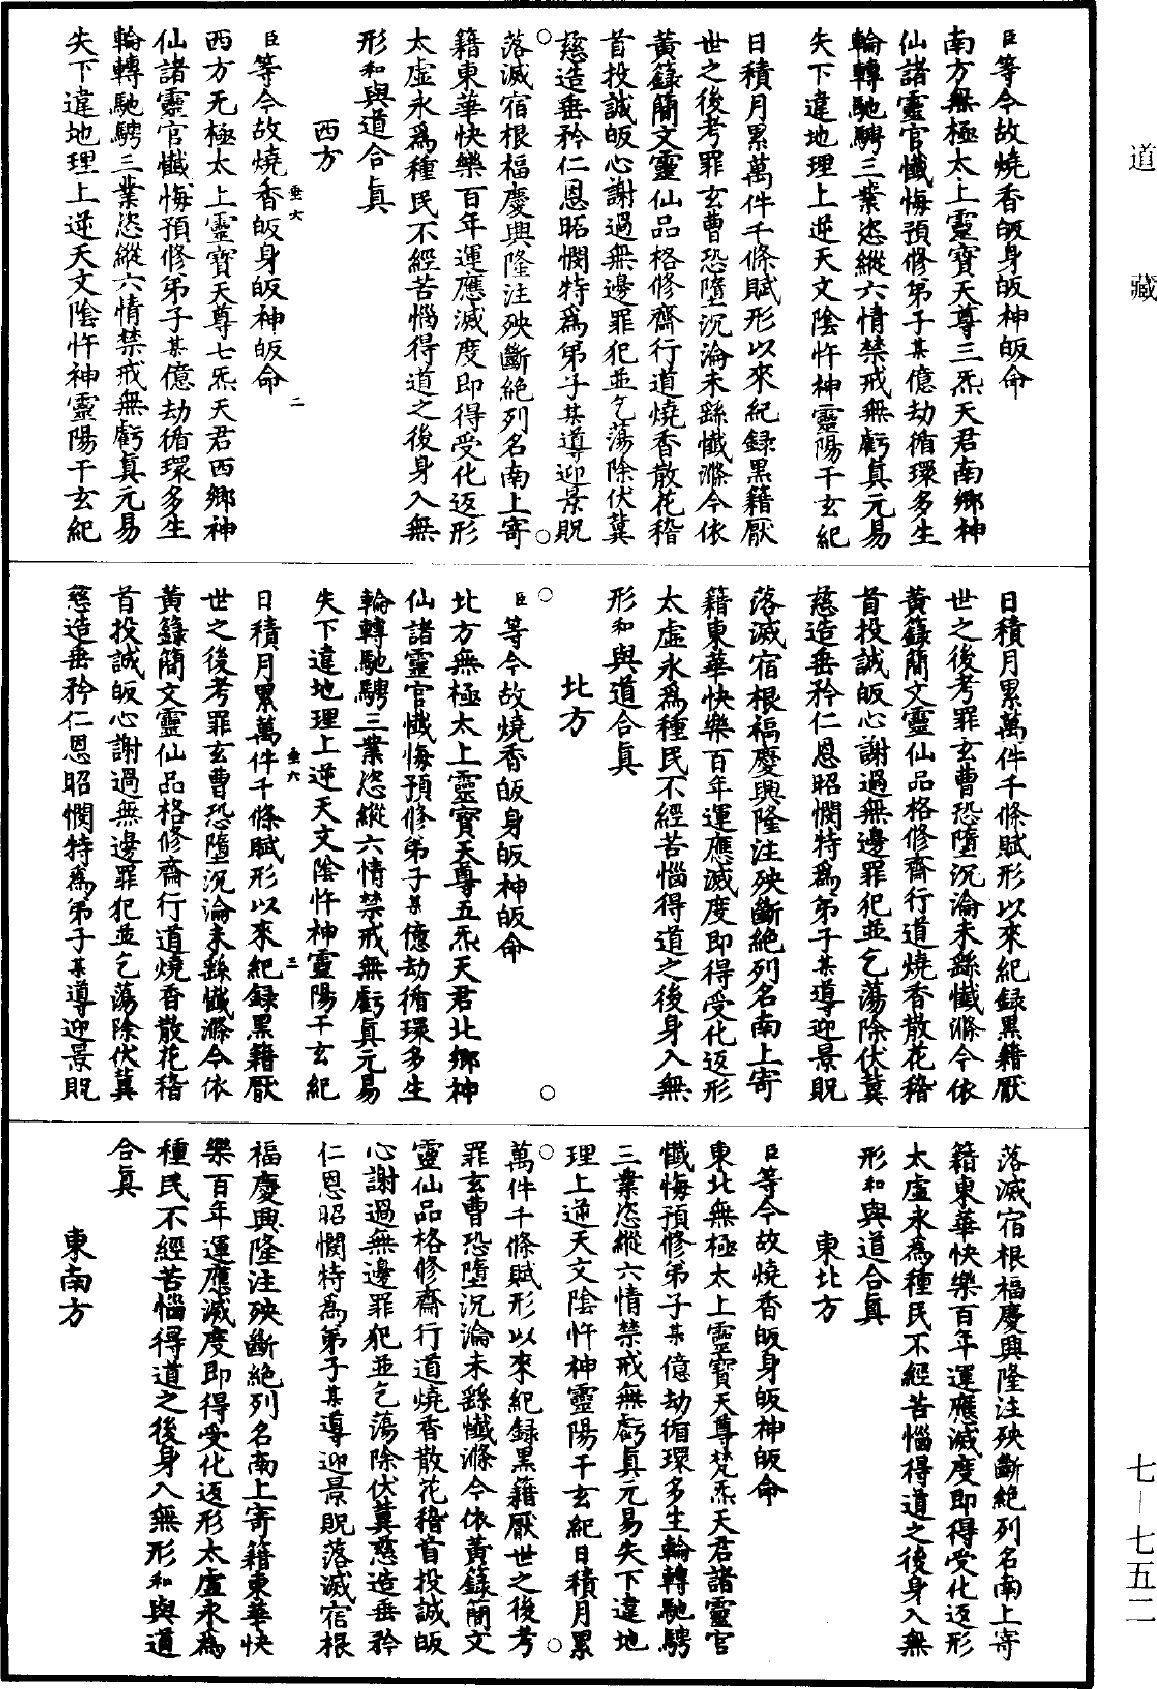 道藏
七—七五二
臣等今故燒香皈身皈神皈命
南方無極太上靈寶天尊三炁天君南鄉神
仙諸靈官懺悔預修弟子某億劫循環多生
輪轉馳騁三業恣縱六情禁戒無虧真元易
失下違地理上逆天文陰忤神靈陽干玄紀
日積月累萬件千條賦形以來紀録黑籍厭
世之後考罪玄曹恐墮沉淪未繇懺滌今依
黃籙簡文靈仙品格修齋行道燒香散花稽
首投誠皈心謝過無邊罪犯並乞蕩除伏冀
慈造垂矜仁恩昭憫特為弟子某導迎景貺
落滅宿根福慶興隆注殃斷絕列名南上寄
籍東華快樂百年運應滅度即得受化返形
太虛永為種民不經苦惱得道之後身入無
形和與道合真
西方
臣等今故燒香皈身皈神皈命
垂六
二
西方无極太上靈寶天尊七炁天君西鄉神
仙諸靈官懺悔預修弟子某億劫循環多生
輪轉馳騁三業恣縱六情禁戒無虧真元易
失下違地理上逆天文陰忤神靈陽干玄紀
日積月累萬件千條賦形以來紀録黑籍厭
世之後考罪玄曹恐墮沉淪未繇懺滌今依
黃籙簡文靈仙品格修齋行道燒香散花稽
首投誠皈心謝過無邊罪犯並乞蕩除伏冀
慈造垂矜仁恩昭憫特為弟子某導迎景貺
落滅宿根福慶興隆注殃斷絕列名南上寄
籍東華快樂百年運應滅度即得受化返形
太虛永為種民不經苦惱得道之後身入無
形和與道合真
北方
臣等今故燒香皈身皈神皈命
北方無極太上靈寶天尊五炁天君北鄉神
仙諸靈官懺悔預修弟子某億劫循環多生
輪轉馳騁三業恣縱六情禁戒無虧真元易
失下違地理上逆天文陰忤神靈陽干玄紀
垂六
三
日積月累萬件千條賦形以來紀録黑籍厭
世之後考罪玄曹恐墮沉淪未繇懺滌今依
黃籙簡文靈仙品格修齋行道燒香散花稽
首投誠皈心謝過無邊罪犯並乞蕩除伏冀
慈造垂矜仁恩昭憫特為弟子某導迎景貺
落滅宿根福慶興隆注殃斷絕列名南上寄
籍東華快樂百年運應滅度即得受化返形
太虛永為種民不經苦惱得道之後身入無
形和與道合真
東北方
臣等今故燒香皈身皈神皈命
東北無極太上靈寶天尊梵炁天君諸靈官
懺悔預修弟子某億劫循環多生輪轉馳騁
三業恣縱六情禁戒無虧真元易失下違地
理上逆天文陰忤神靈陽干玄紀日積月累
萬件千條賦形以來紀録黑籍厭世之後考
罪玄曹恐墮沉淪未繇懺滌今依黃籙簡文
靈仙品格修齋行道燒香散花稽首投誠皈
心謝過無邊罪犯並乞蕩除伏冀慈造垂矜
仁恩昭憫特為弟子某導迎景貺落滅宿根
福慶興隆注殃斷絕列名南上寄籍東華快
樂百年運應滅度即得受化返形太虛永為
種民不經苦惱得道之後身入無形和與道
合真
東南方